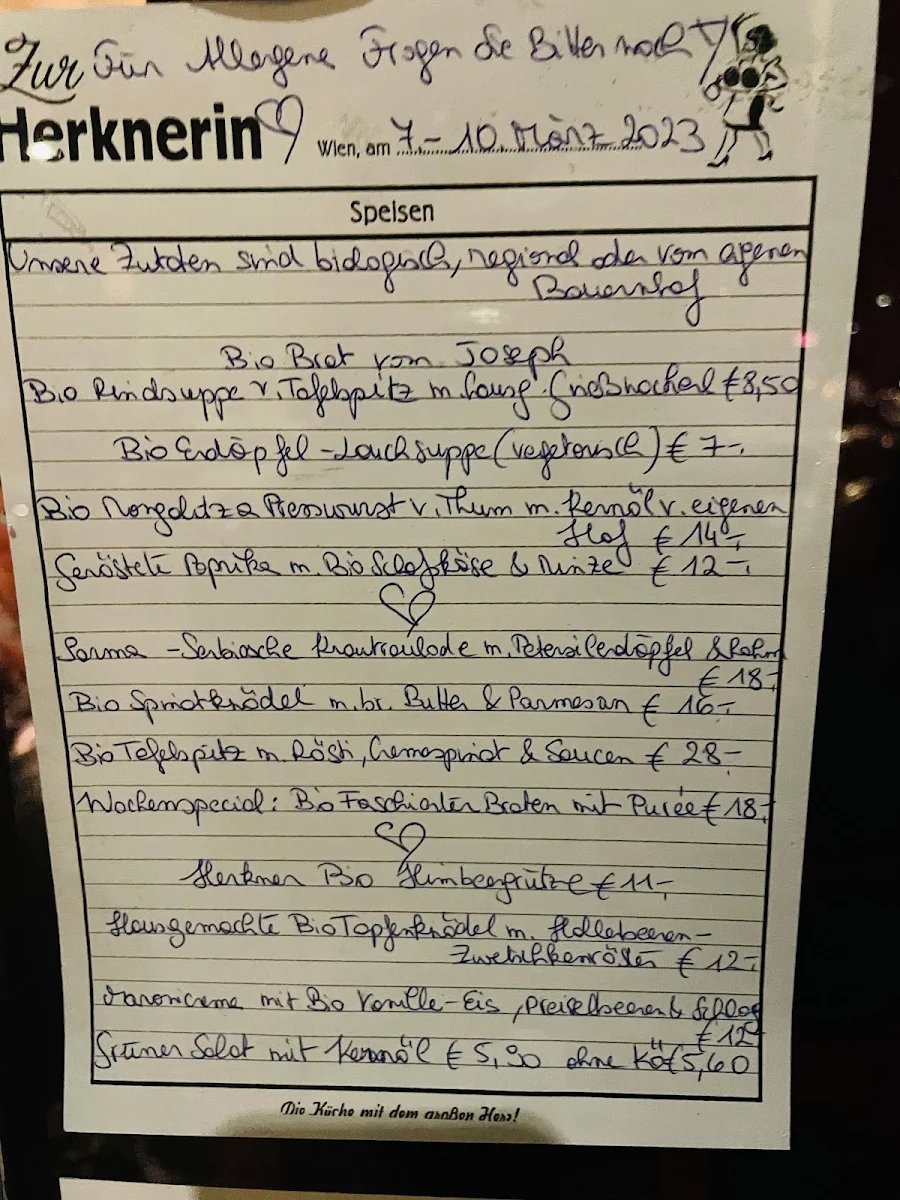 Zur Für Allergene Fragen Sie Bitte nach
Herknerin Wien, am 7.-10. März 2023
Speisen
Unsere Zutaten sind biologisch, regional oder vom eigenen
Bauernhof
Bio Brot vom Joseph
Bio Rindsuppe v. Tafelspitz m. Grießnockerl €8,50
Bio Erdöpfel-Lauchsuppe (vegetarisch) € 7-.
Bio Mangalitza Presswurst v. Thum m. Kernöl v. eigenen
Hof € 14-,
Geröstete Paprika m. Bio Schafkäse & Minze € 12-,
Sarma - Serbische Krautroulade m. Petersilerdöpfel & Rahm
€ 18,-
Bio Spinatknödel m. br. Butter & Parmesan € 16,-
Bio Tafelspitz m. Rösti, Cremespinat & Saucen € 28-
Wochenspecial: Bio Faschierter Braten mit Purée € 18,-
Herkner Bio Himbeergrütze € 11-,
Hausgemachte Bio Topfenknödel m. Hollebeeren-
Zwetschkenröster € 12-,
Maronicreme mit Bio Vanille-Eis, Preiselbeeren & Schlag
€ 12-
Grüner Salat mit Kernöl € 5,90 ohne Kö €5,60
Die Küche mit dem großen Herz!